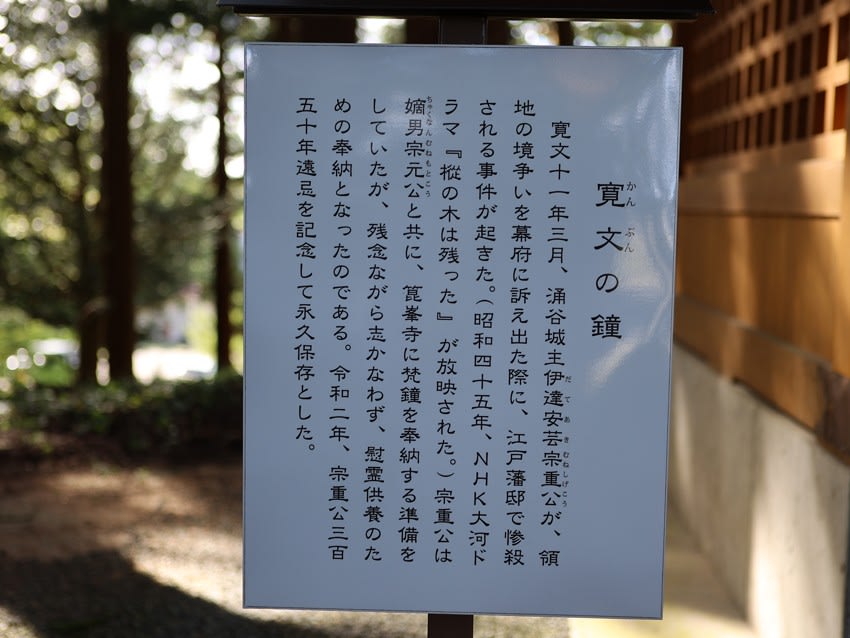 寛文の鐘
かんぶん
寛文十一年三月、涌谷城主伊達安芸宗重公が、領
だてあきむねしげこう
地の境争いを幕府に訴え出た際に、江戸藩邸で惨殺
される事件が起きた。(昭和四十五年、NHK大河ド
ラマ『樅の木は残った』が放映された。)宗重公は
嫡男宗元公と共に、箟峯寺に梵鐘を奉納する準備を
ちゃくなんむねもとこう
していたが、残念ながら志かなわず、慰霊供養のた
めの奉納となったのである。令和二年、宗重公三百
五十年遠忌を記念して永久保存とした。